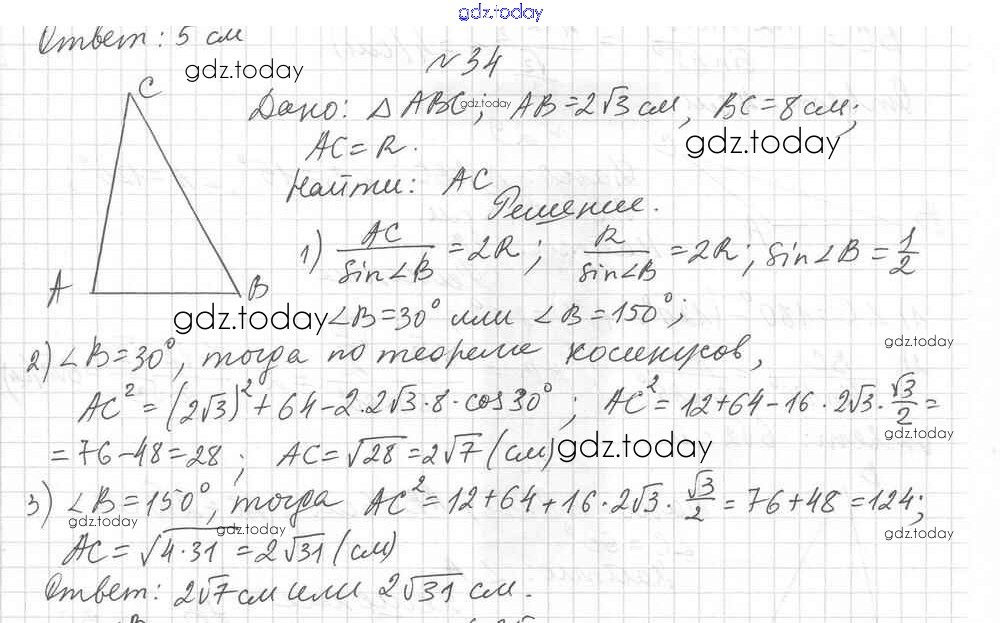 gdz.today
Ответ: 5 см
№34
gdz.today
C
Дано: △ABC; AB=2√3 см, BC=8см;
gdz.today
AC=R.
gdz.today
Найти: AC
Решение.
1) AC/sin∠B = 2R; R/sin∠B = 2R; sin∠B = 1/2
A B
gdz.today
∠B=30° или ∠B=150°;
2) ∠B=30°, тогда по теореме косинусов,
gdz.today
AC²=(2√3)²+64-2·2√3·8·cos30°; AC²=12+64-16·2√3·√3/2=
gdz.today
=76-48=28; AC=√28=2√7 (см)
gdz.today
3) ∠B=150°, тогда AC²=12+64+16·2√3·√3/2=76+48=124;
gdz.today
gdz.today
gdz.today
AC=√4·31=2√31 (см)
Ответ: 2√7 см или 2√31 см.